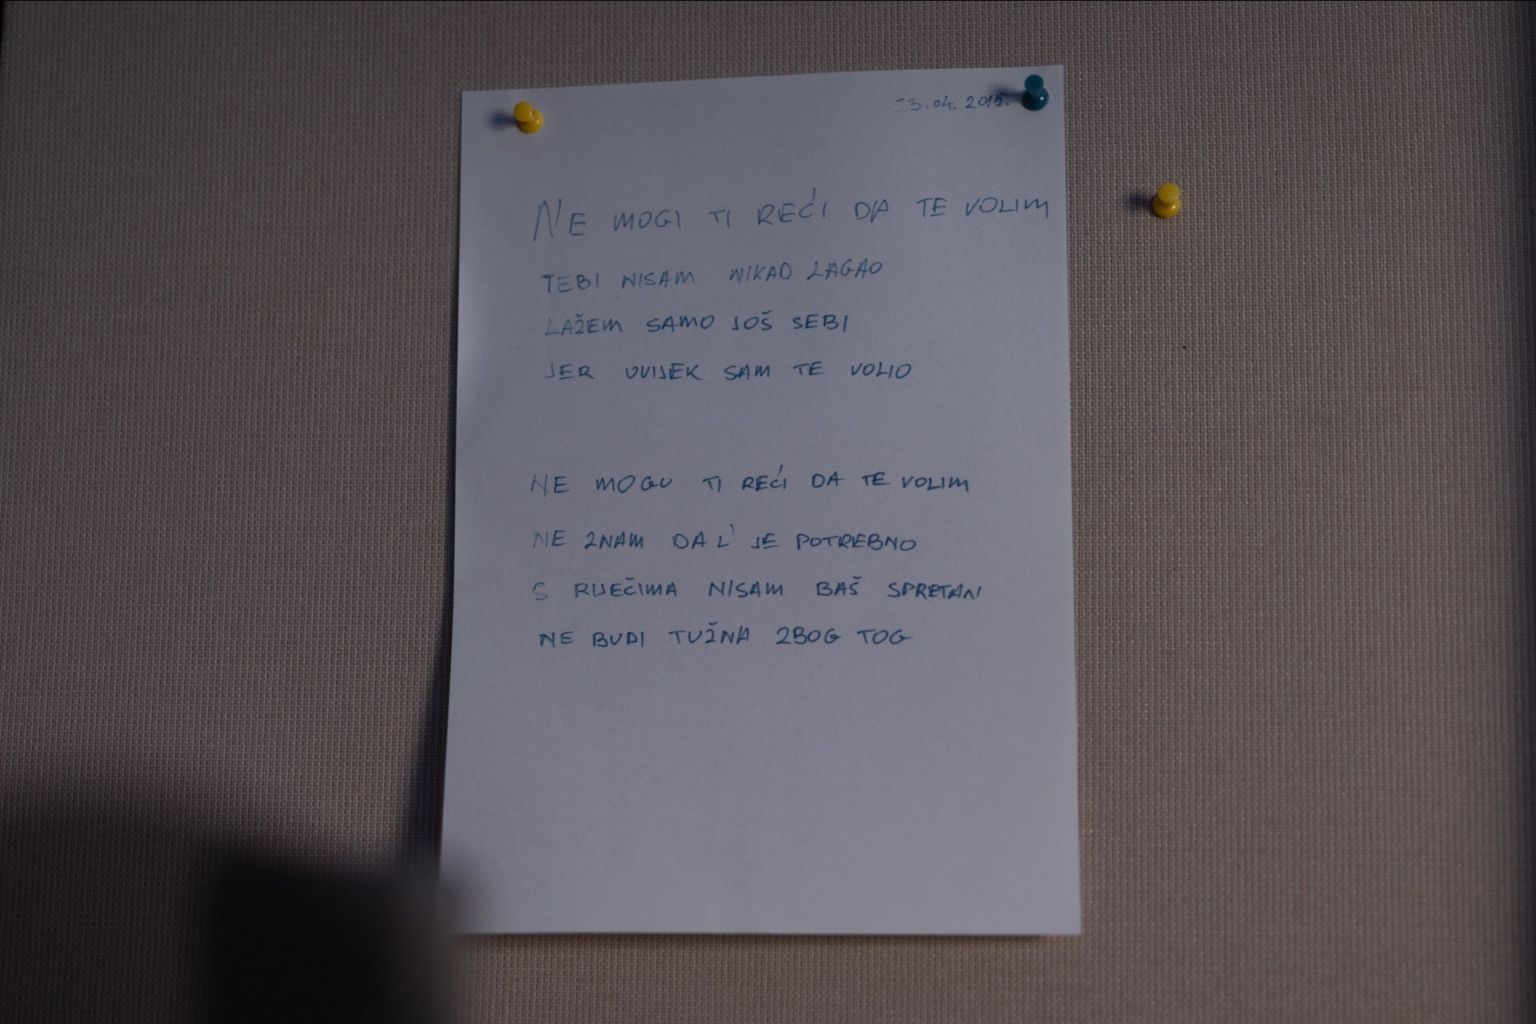 23.04. 2015.
NE MOGU TI REĆI DA TE VOLIM
TEBI NISAM NIKAD LAGAO
LAŽEM SAMO JOŠ SEBI
JER UVIJEK SAM TE VOLIO
NE MOGU TI REĆI DA TE VOLIM
NE ZNAM DA L' JE POTREBNO
S RIJEČIMA NISAM BAŠ SPRETAN
NE BUDI TUŽNA ZBOG TOG